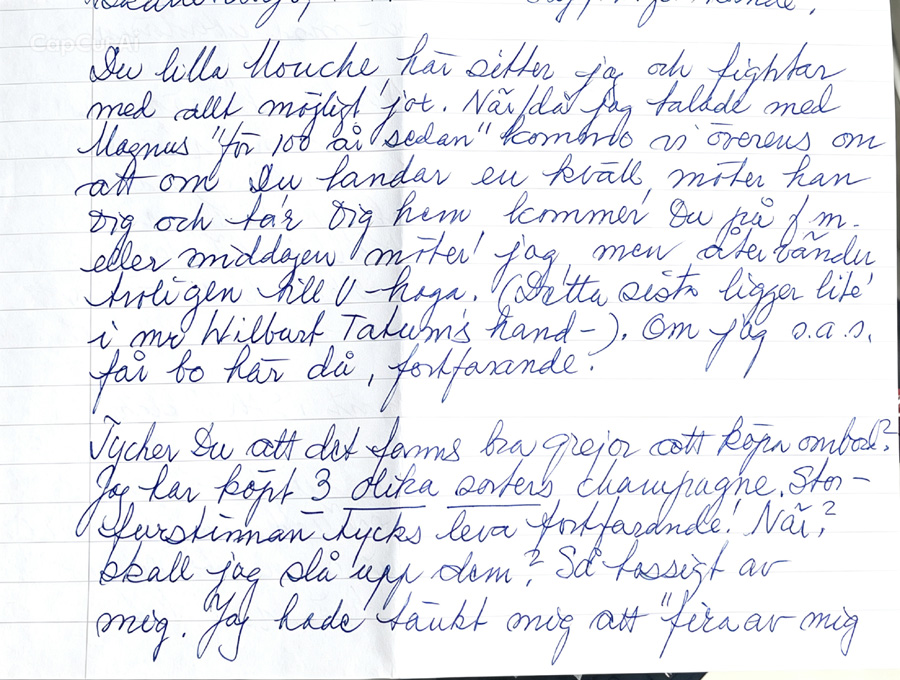 CapCut AI
Du lilla Mouche, här sitter jag och fightar
med allt möjligt, jox. När/då jag talade med
Magnus "för 100 år sedan" kommo vi överens om
att om Du landar en kväll, möter han
Dig och tar Dig hem kommer Du på f m.
eller middagen möter jag, men återvänder
troligen till U-haga. (Detta sista ligger lite
i mr Wilburt Tatum's hand-). Om jag s.a.s.
får bo här då, fortfarande.
Tycker Du att det fanns bra grejor att köpa ombord?
Jag har köpt 3 olika sorters champagne. Stor-
furstinnan tycks leva fortfarande! När?
skall jag slå upp dem? Så tossigt av
mig. Jag hade tänkt mig att "fira av mig